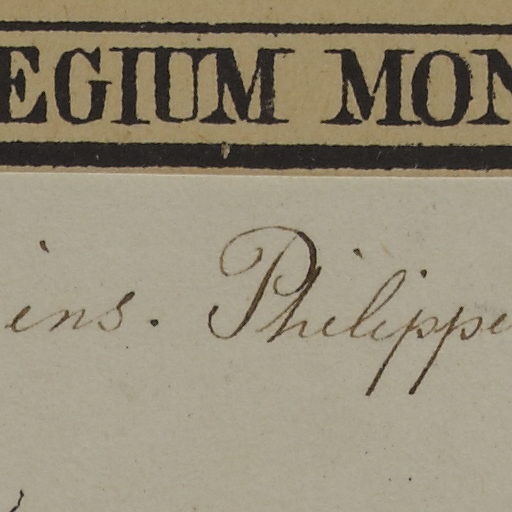 EGIUM MON
ins. Philippe